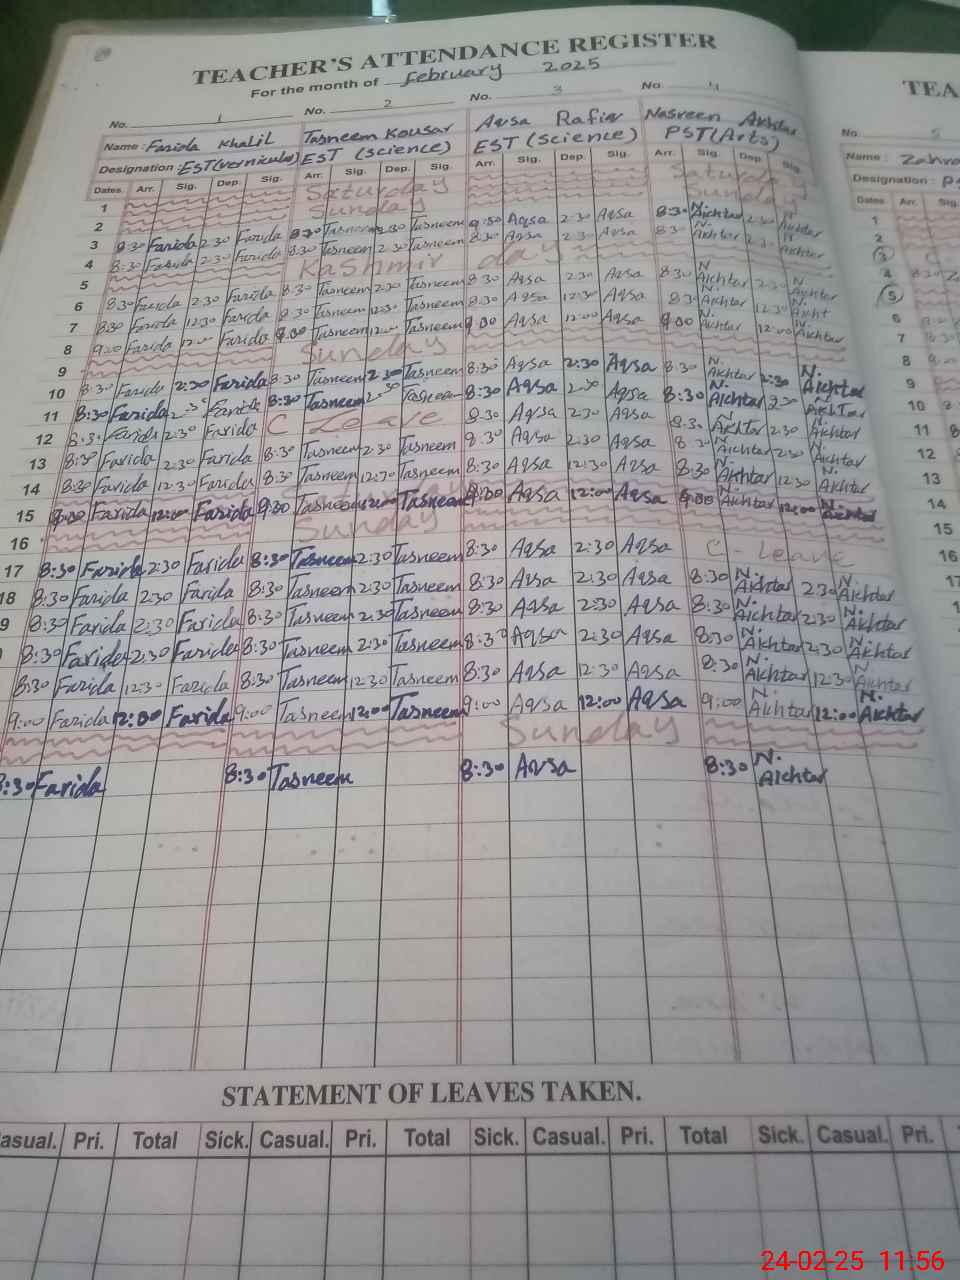 TEACHER'S ATTENDANCE REGISTER
For the month of February 2025
No. 1 No. 2 No. 3 No. 4
Name: Farida Khalil Tasneem Kousar Aqsa Rafiq Nasreen Akhtar
Designation: EST(vernicular) EST (science) EST (science) PST(Arts)
Dates. Arr. Sig. Dep. Sig. Arr. Sig. Dep. Sig. Arr. Sig. Dep. Sig. Arr. Sig. Dep. Sig.
1 Saturday Saturday
2 Sunday Sunday
3 8:30 Farida 2:30 Farida 8:30 Tasneem 2:30 Tasneem 8:30 Aqsa 2:30 Aqsa 8:30 N. Akhtar 2:30 N. Akhtar
4 8:30 Farida 2:30 Farida 8:30 Tasneem 2:30 Tasneem 8:30 Aqsa 2:30 Aqsa 8:30 N. Akhtar 2:30 N. Akhtar
5 Kashmir day
6 8:30 Farida 2:30 Farida 8:30 Tasneem 2:30 Tasneem 8:30 Aqsa 2:30 Aqsa 8:30 N. Akhtar 2:30 N. Akhtar
7 8:30 Farida 12:30 Farida 8:30 Tasneem 12:30 Tasneem 8:30 Aqsa 12:30 Aqsa 8:30 N. Akhtar 12:30 N. Akht
8 9:00 Farida 12:00 Farida 9:00 Tasneem 12:00 Tasneem 9:00 Aqsa 12:00 Aqsa 9:00 N. Akhtar 12:00 N. Akht
9 Sunday
10 8:30 Farida 2:30 Farida 8:30 Tasneem 2:30 Tasneem 8:30 Aqsa 2:30 Aqsa 8:30 N. Akhtar 2:30 N. Akhtar
11 8:30 Farida 2:30 Farida 8:30 Tasneem 2:30 Tasneem 8:30 Aqsa 2:30 Aqsa 8:30 N. Akhtar 2:30 N. Akhtar
12 8:30 Farida 2:30 Farida C Leave 8:30 Aqsa 2:30 Aqsa 8:30 N. Akhtar 2:30 N. Akhtar
13 8:30 Farida 2:30 Farida 8:30 Tasneem 2:30 Tasneem 8:30 Aqsa 2:30 Aqsa 8:30 N. Akhtar 2:30 N. Akhtar
14 8:30 Farida 12:30 Farida 8:30 Tasneem 12:30 Tasneem 8:30 Aqsa 12:30 Aqsa 8:30 N. Akhtar 12:30 N. Akhtar
15 9:00 Farida 12:00 Farida 9:00 Tasneem 12:00 Tasneem 9:00 Aqsa 12:00 Aqsa 9:00 N. Akhtar 12:00 N. Akhtar
16 Sunday
17 8:30 Farida 2:30 Farida 8:30 Tasneem 2:30 Tasneem 8:30 Aqsa 2:30 Aqsa C - Leave
18 8:30 Farida 2:30 Farida 8:30 Tasneem 2:30 Tasneem 8:30 Aqsa 2:30 Aqsa 8:30 N. Akhtar 2:30 N. Akhtar
9 8:30 Farida 2:30 Farida 8:30 Tasneem 2:30 Tasneem 8:30 Aqsa 2:30 Aqsa 8:30 N. Akhtar 2:30 N. Akhtar
8:30 Farida 2:30 Farida 8:30 Tasneem 2:30 Tasneem 8:30 Aqsa 2:30 Aqsa 8:30 N. Akhtar 2:30 N. Akhtar
8:30 Farida 12:30 Farida 8:30 Tasneem 12:30 Tasneem 8:30 Aqsa 12:30 Aqsa 8:30 N. Akhtar 12:30 N. Akhtar
9:00 Farida 12:00 Farida 9:00 Tasneem 12:00 Tasneem 9:00 Aqsa 12:00 Aqsa 9:00 N. Akhtar 12:00 N. Akhtar
Sunday
8:30 Farida 8:30 Tasneem 8:30 Aqsa 8:30 N. Akhtar
STATEMENT OF LEAVES TAKEN.
asual. Pri. Total Sick. Casual. Pri. Total Sick. Casual. Pri. Total Sick. Casual. Pri.
TEA
No. 5
Name: Zahra
Designation: P
Dates Arr. Sig.
1
2
3
4
5
6
7
8
9
10
11
12
13
14
15
16
17
24-02-25 11:56